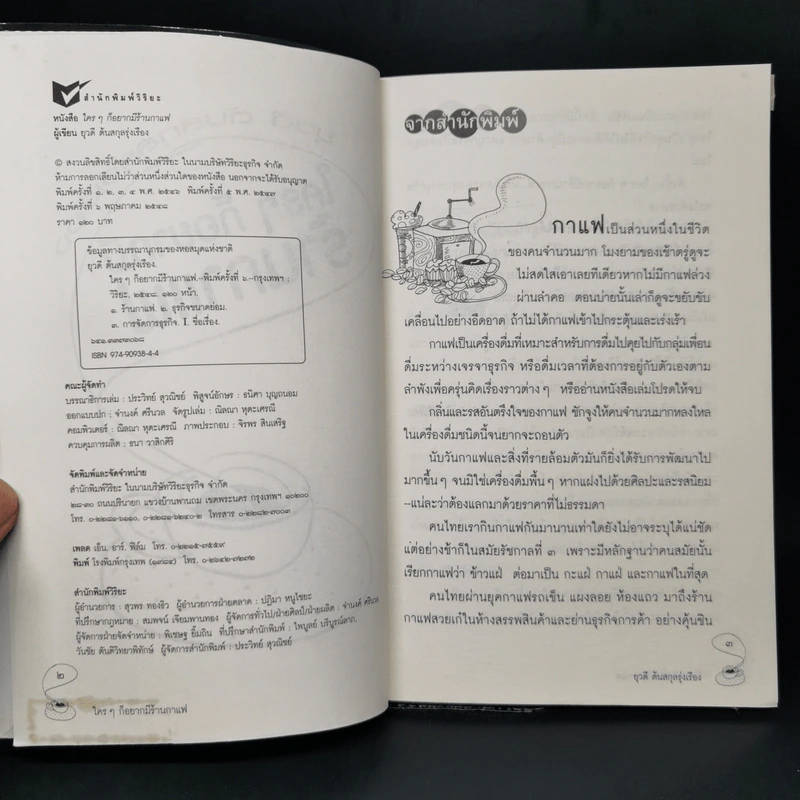 สำนักพิมพ์วิริยะ
หนังสือ ใคร ๆ ก็อยากมีร้านกาแฟ
ผู้เขียน ยุวดี ต้นสกุลรุ่งเรือง
© สงวนลิขสิทธิ์โดยสำนักพิมพ์วิริยะ ในนามบริษัทวิริยะธุรกิจ จำกัด
ห้ามการลอกเลียนไม่ว่าส่วนหนึ่งส่วนใดของหนังสือ นอกจากจะได้รับอนุญาต
พิมพ์ครั้งที่ ๑, ๒, ๓, ๔ พ.ศ. ๒๕๔๖ พิมพ์ครั้งที่ ๕ พ.ศ. ๒๕๔๗
พิมพ์ครั้งที่ ๖ พฤษภาคม ๒๕๔๘
ราคา ๑๒๐ บาท
ข้อมูลทางบรรณานุกรมของหอสมุดแห่งชาติ
ยุวดี ต้นสกุลรุ่งเรือง.
ใคร ๆ ก็อยากมีร้านกาแฟ.--พิมพ์ครั้งที่ ๖.--กรุงเทพฯ :
วิริยะ, ๒๕๔๘. ๑๒๐ หน้า.
๑. ร้านกาแฟ. ๒. ธุรกิจขนาดย่อม.
๓. การจัดการธุรกิจ. I. ชื่อเรื่อง.
๖๔๑.๓๓๗๓๐๖๘
ISBN 974-90938-4-4
คณะผู้จัดทำ
บรรณาธิการเล่ม : ประวิทย์ สุวณิชย์ พิสูจน์อักษร : ธนิศา บุญถนอม
ออกแบบปก : จำนงค์ ศรีนวล จัดรูปเล่ม : ณิลณา หุตะเศรณี
คอมพิวเตอร์ : ณิลณา หุตะเศรณี ภาพประกอบ : จิรพร สินเสริฐ
ควบคุมการผลิต : ธนา วาสิกศิริ
จัดพิมพ์และจัดจำหน่าย
สำนักพิมพ์วิริยะ ในนามบริษัทวิริยะธุรกิจ จำกัด
๒๘-๓๐ ถนนปรินายก แขวงบ้านพานถม เขตพระนคร กรุงเทพฯ ๑๐๒๐๐
โทร. ๐-๒๒๘๑-๖๑๑๐, ๐-๒๒๘๑-๖๒๔๐-๒ โทรสาร ๐-๒๒๘๒-๗๐๐๓
เพลต เอ็น. อาร์. ฟิล์ม โทร. ๐-๒๒๑๕-๗๕๕๙
พิมพ์ โรงพิมพ์กรุงเทพ (๑๙๘๔) โทร. ๐-๒๖๔๒-๗๒๗๒
สำนักพิมพ์วิริยะ
ผู้อำนวยการ : สุวพร ทองธิว ผู้อำนวยการฝ่ายตลาด : ปฏิมา หนูไชยะ
ที่ปรึกษากฎหมาย : สมพจน์ เจียมพานทอง ผู้จัดการทั่วไป/ฝ่ายศิลป์/ฝ่ายผลิต : จำนงค์ ศรีนวล
ผู้จัดการฝ่ายจัดจำหน่าย : พิเชษฐ ยิ้มถิน ที่ปรึกษาสำนักพิมพ์ : ไพบูลย์ บริบูรณ์ลาภ,
วันชัย ตันติวิทยาพิทักษ์ ผู้จัดการสำนักพิมพ์ : ประวิทย์ สุวณิชย์
๒
ใคร ๆ ก็อยากมีร้านกาแฟ
จากสำนักพิมพ์
กาแฟเป็นส่วนหนึ่งในชีวิต
ของคนจำนวนมาก โมงยามของเช้าตรู่ดูจะ
ไม่สดใสเอาเลยทีเดียวหากไม่มีกาแฟล่วง
ผ่านลำคอ ตอนบ่ายนั้นเล่าก็ดูจะขยับขับ
เคลื่อนไปอย่างอืดอาด ถ้าไม่ได้กาแฟเข้าไปกระตุ้นและเร่งเร้า
กาแฟเป็นเครื่องดื่มที่เหมาะสำหรับการดื่มไปคุยไปกับกลุ่มเพื่อน
ดื่มระหว่างเจรจาธุรกิจ หรือดื่มเวลาที่ต้องการอยู่กับตัวเองตาม
ลำพังเพื่อครุ่นคิดเรื่องราวต่าง ๆ หรืออ่านหนังสือเล่มโปรดให้จบ
กลิ่นและรสอันตรึงใจของกาแฟ ชักจูงให้คนจำนวนมากหลงใหล
ในเครื่องดื่มชนิดนี้จนยากจะถอนตัว
นับวันกาแฟและสิ่งที่รายล้อมตัวมันก็ยิ่งได้รับการพัฒนาไป
มากขึ้น ๆ จนมิใช่เครื่องดื่มพื้น ๆ หากแฝงไปด้วยศิลปะและรสนิยม
--แน่ละว่าต้องแลกมาด้วยราคาที่ไม่ธรรมดา
คนไทยเรากินกาแฟกันมานานเท่าใดยังไม่อาจระบุได้แน่ชัด
แต่อย่างช้าก็ในสมัยรัชกาลที่ ๓ เพราะมีหลักฐานว่าคนสมัยนั้น
เรียกกาแฟว่า ข้าวแฝ่ ต่อมาเป็น กะแฝ่ กาแฝ่ และกาแฟในที่สุด
คนไทยผ่านยุคกาแฟรถเข็น แผงลอย ห้องแถว มาถึงร้าน
กาแฟสวยเก๋ในห้างสรรพสินค้าและย่านธุรกิจการค้า อย่างคุ้นชิน
๓
ยุวดี ต้นสกุลรุ่งเรือง